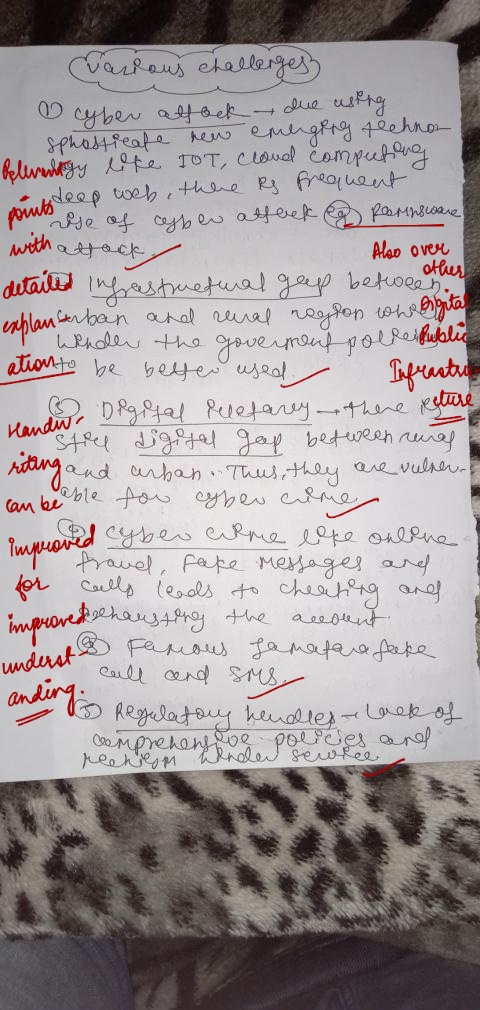 various challenges
① cyber attack → due using
sphosticate new emerging techno-
logy like IOT, cloud computing
deep web, there is frequent
rise of cyber attack eg Ramnsware
attack.
Infrastructural gap between
urban and rural region which
hinder the goverment policies
to be better used.
③ Digital iliteracy → there is
still digital gap between rural
and urban. Thus, they are vulner-
able for cyber crime
④ cyber crime like online
fraud, fake messages and
calls leads to cheating and
exhausting the account.
eg Famous Jamatara fake
call and SMS.
⑤ Regulatory hurdles → lack of
comprehensive policies and
hinder service
Relevant
points
with
detailed
explan-
ation
Handw-
riting
can be
improved
for
improved
underst-
anding.
Also over
other
Digital
Public
Infrastru-
cture